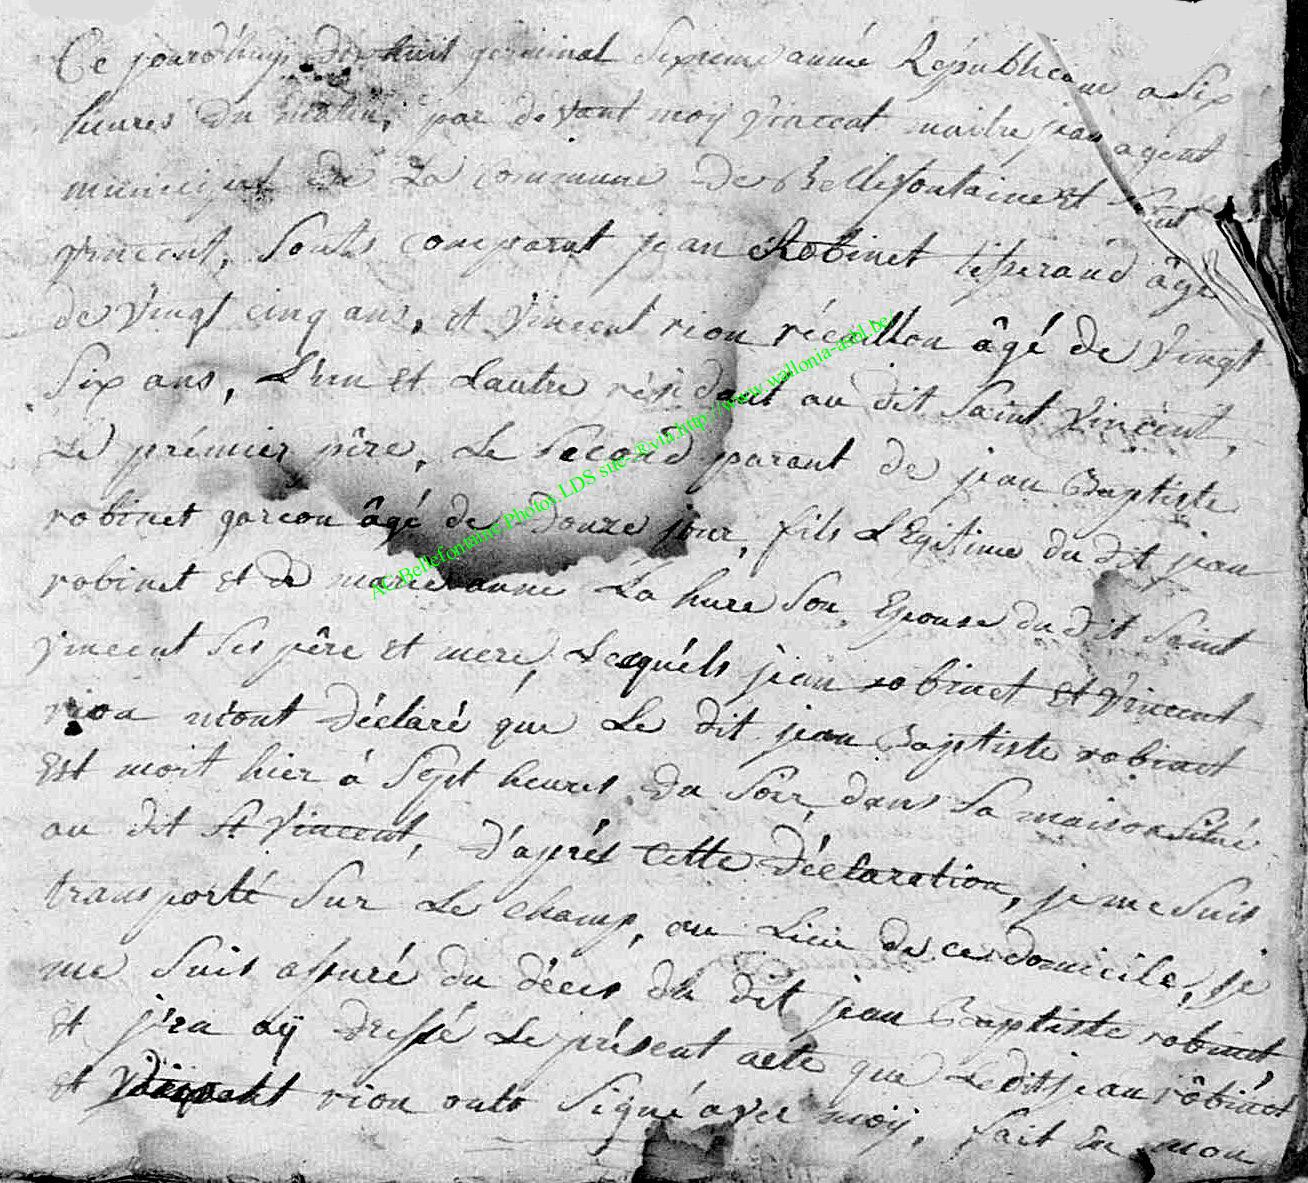 Ce jourd'huy dix huit germinal Sixieme année Républicaine a Six
heures du matin, par devant moy Vincent maitrejean agent
municipal de La Commune de Bellefontaine et Saint
Vincent, Sonts comparut jean Robinet tisserand âgé
de Vingt cinq ans, et Vincent rion récaillon âgé de Vingt
Six ans, L'un et Lautre résidant au dit Saint Vincent,
Le prémier pêre, Le Second parant de jean Baptiste
robinet garcon âgé de Douze jour, fils LEgitime du dit jean
robinet et de marie anne La hure Son Epouse du dit Saint
Vincent Ses pêre et mere, Lesquéls jean robinet et Vincent
rion m'ont Déclaré que Le dit jean Baptiste robinet
Est mort hier à Sept heures du Soir, dans Sa maison Situé
au dit St Vincent, D'aprés Cette Déclaration, je me Suis
transporté Sur Le champ, au Lieu de ce domicile, je
me Suis assuré du décés du dit jean Baptiste robinet,
Et j'en aÿ Dressé Le présent acte que Ledit jean rôbinet
et Vincent rion onts Signé avec moÿ, fait En mon
AC Bellefontaine Photos LDS sue-® via http://www.wallonia-asbl.be/